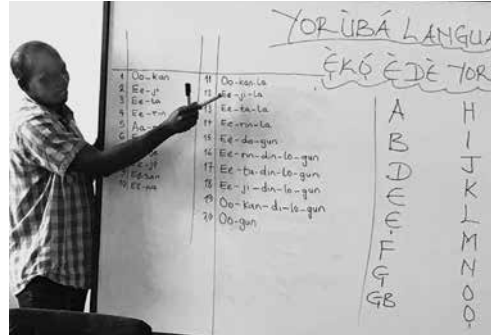 YORÙBÁ LANGUA
Ẹ̀KỌ́ ÈDÈ YOR
1 Oo-kan
2 Ee-ji
3 Ee-ta
4 Ee-rin
5
6
11 Oo-kan-la
12 Ee-ji-la
13 Ee-ta-la
14 Ee-rin-la
15 Ee-do-gun
16 Ee-rin-din-lo-gun
17 Ee-ta-din-lo-gun
18 Ee-ji-din-lo-gun
19 Oo-kan-di-lo-gun
20 Oo-gun
A
B
D
E
Ẹ
F
G
GB
H
I
J
K
L
M
N
O
Ọ